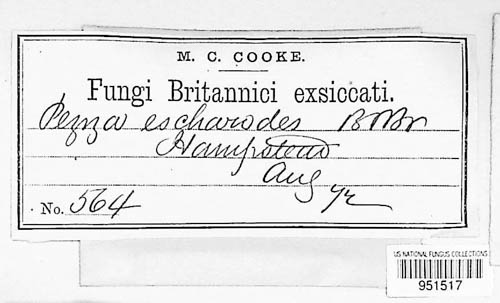 M. C. COOKE.
Fungi Britannici exsiccati.
Peziza escharodes B & Br
Hampstead
Aug 72
No. 564
US NATIONAL FUNGUS COLLECTIONS
951517